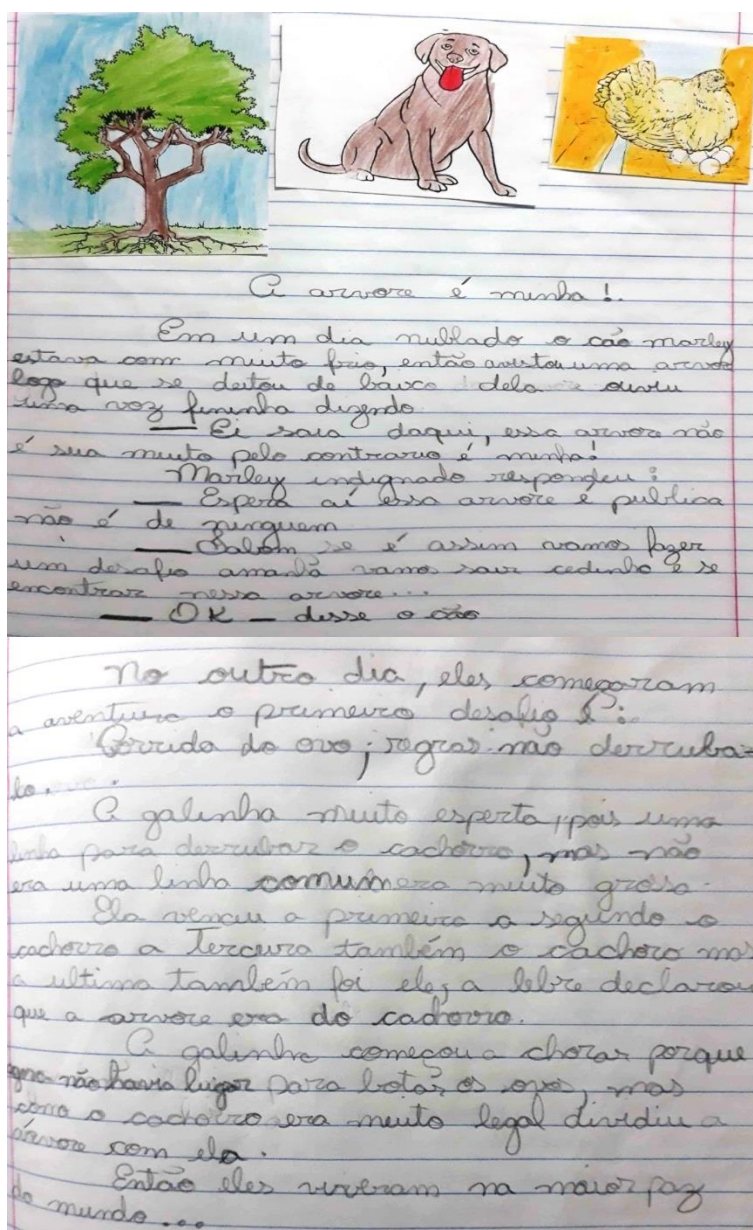 A arvore é minha!.
Em um dia nublado o cão marley
estava com muito frio, então avistou uma arvore
logo que se deitou de baixo dela ouviu
uma voz fininha dizendo
— Ei saia daqui, essa arvore não
é sua muito pelo contrario é minha!
Marley indignado respondeu:
— Espera aí essa arvore é publica
não é de ninguem
— se é assim vamos fazer
um desafio amanhã vamos sair cedinho e se
encontrar nessa arvore...
— OK — disse o cão
No outro dia, eles começaram
a aventura o primeiro desafio é:
Corrida do ovo; regras não derruba-
lo.
A galinha muito esperta, pois uma
linha para derrubar o cachorro, mas não
era uma linha comum era muito grosa.
Ela venceu a primeira a segundo o
cachorro a Terceira também o cachoro mas
a ultima também foi ele, a lebre declarou
que a arvore era do cachorro.
A galinha começou a chorar porque
não havia lugar para botar os ovo, mas
como o cachorro era muito legal dividiu a
árvore com ela.
Então eles viveram na maior paz
do mundo...